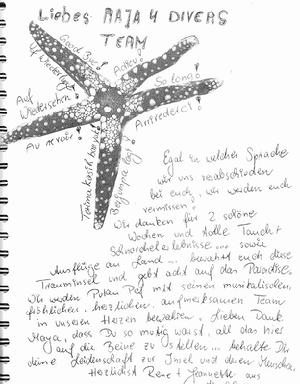 Liebes RAJA 4 DIVERS
TEAM
Good Bye!
Adieu!
So long!
Auf Wiedersehen!
Arrivederci!
Au revoir!
Terima kasih banyak!
Egal in welcher Sprache
wir uns verabschieden
bei euch, wir werden euch
vermissen!
Wir danken für 2 schöne
Wochen und tolle Tauch +
Schnorchelerlebnisse... sowie
Ausflüge an Land... bewahrt euch diese
Trauminsel und gebt acht auf das Paradies.
Wir werden Pulau Pef mit seinem musikalischen,
fröhlichen, herzlichen, aufmerksamen Team
in unseren Herzen bewahren. Lieben Dank
Maya, dass Du so mutig warst, all das hier
auf die Beine zu stellen... behalte Dir
deine Leidenschaft zur Insel und deren Menschen
Herzlichst Rene + Jeannette aus